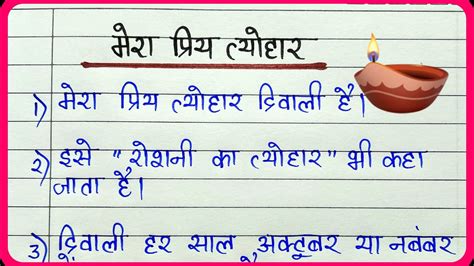 मेरा प्रिय त्योहार
1) मेरा प्रिय त्योहार दिवाली है।
2) इसे "रोशनी का त्योहार" भी कहा
जाता है।
3) दिवाली हर साल, अक्टूबर या नवंबर